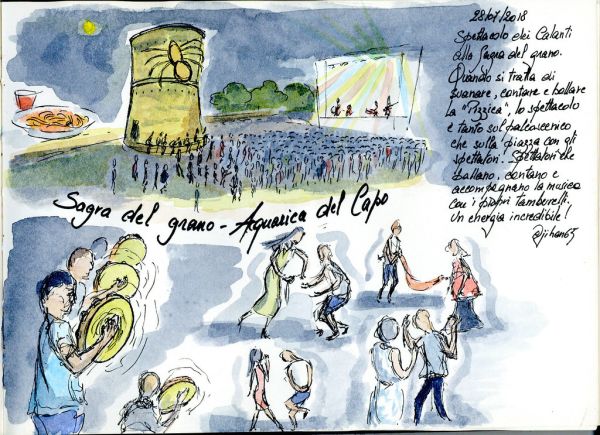 28/07/2018
Spettacolo dei Calanti
alla Sagra del grano.
Quando si tratta di
suonare, cantare e ballare
la "Pizzica", lo spettacolo
è tanto sul palcoscenico
che sulla piazza con gli
spettatori. Spettatori che
ballano, cantano e
accompagnano la musica
con i propri tamburelli.
Un energia incredibile!
@jihan65
Sagra del grano - Aquarica del Capo